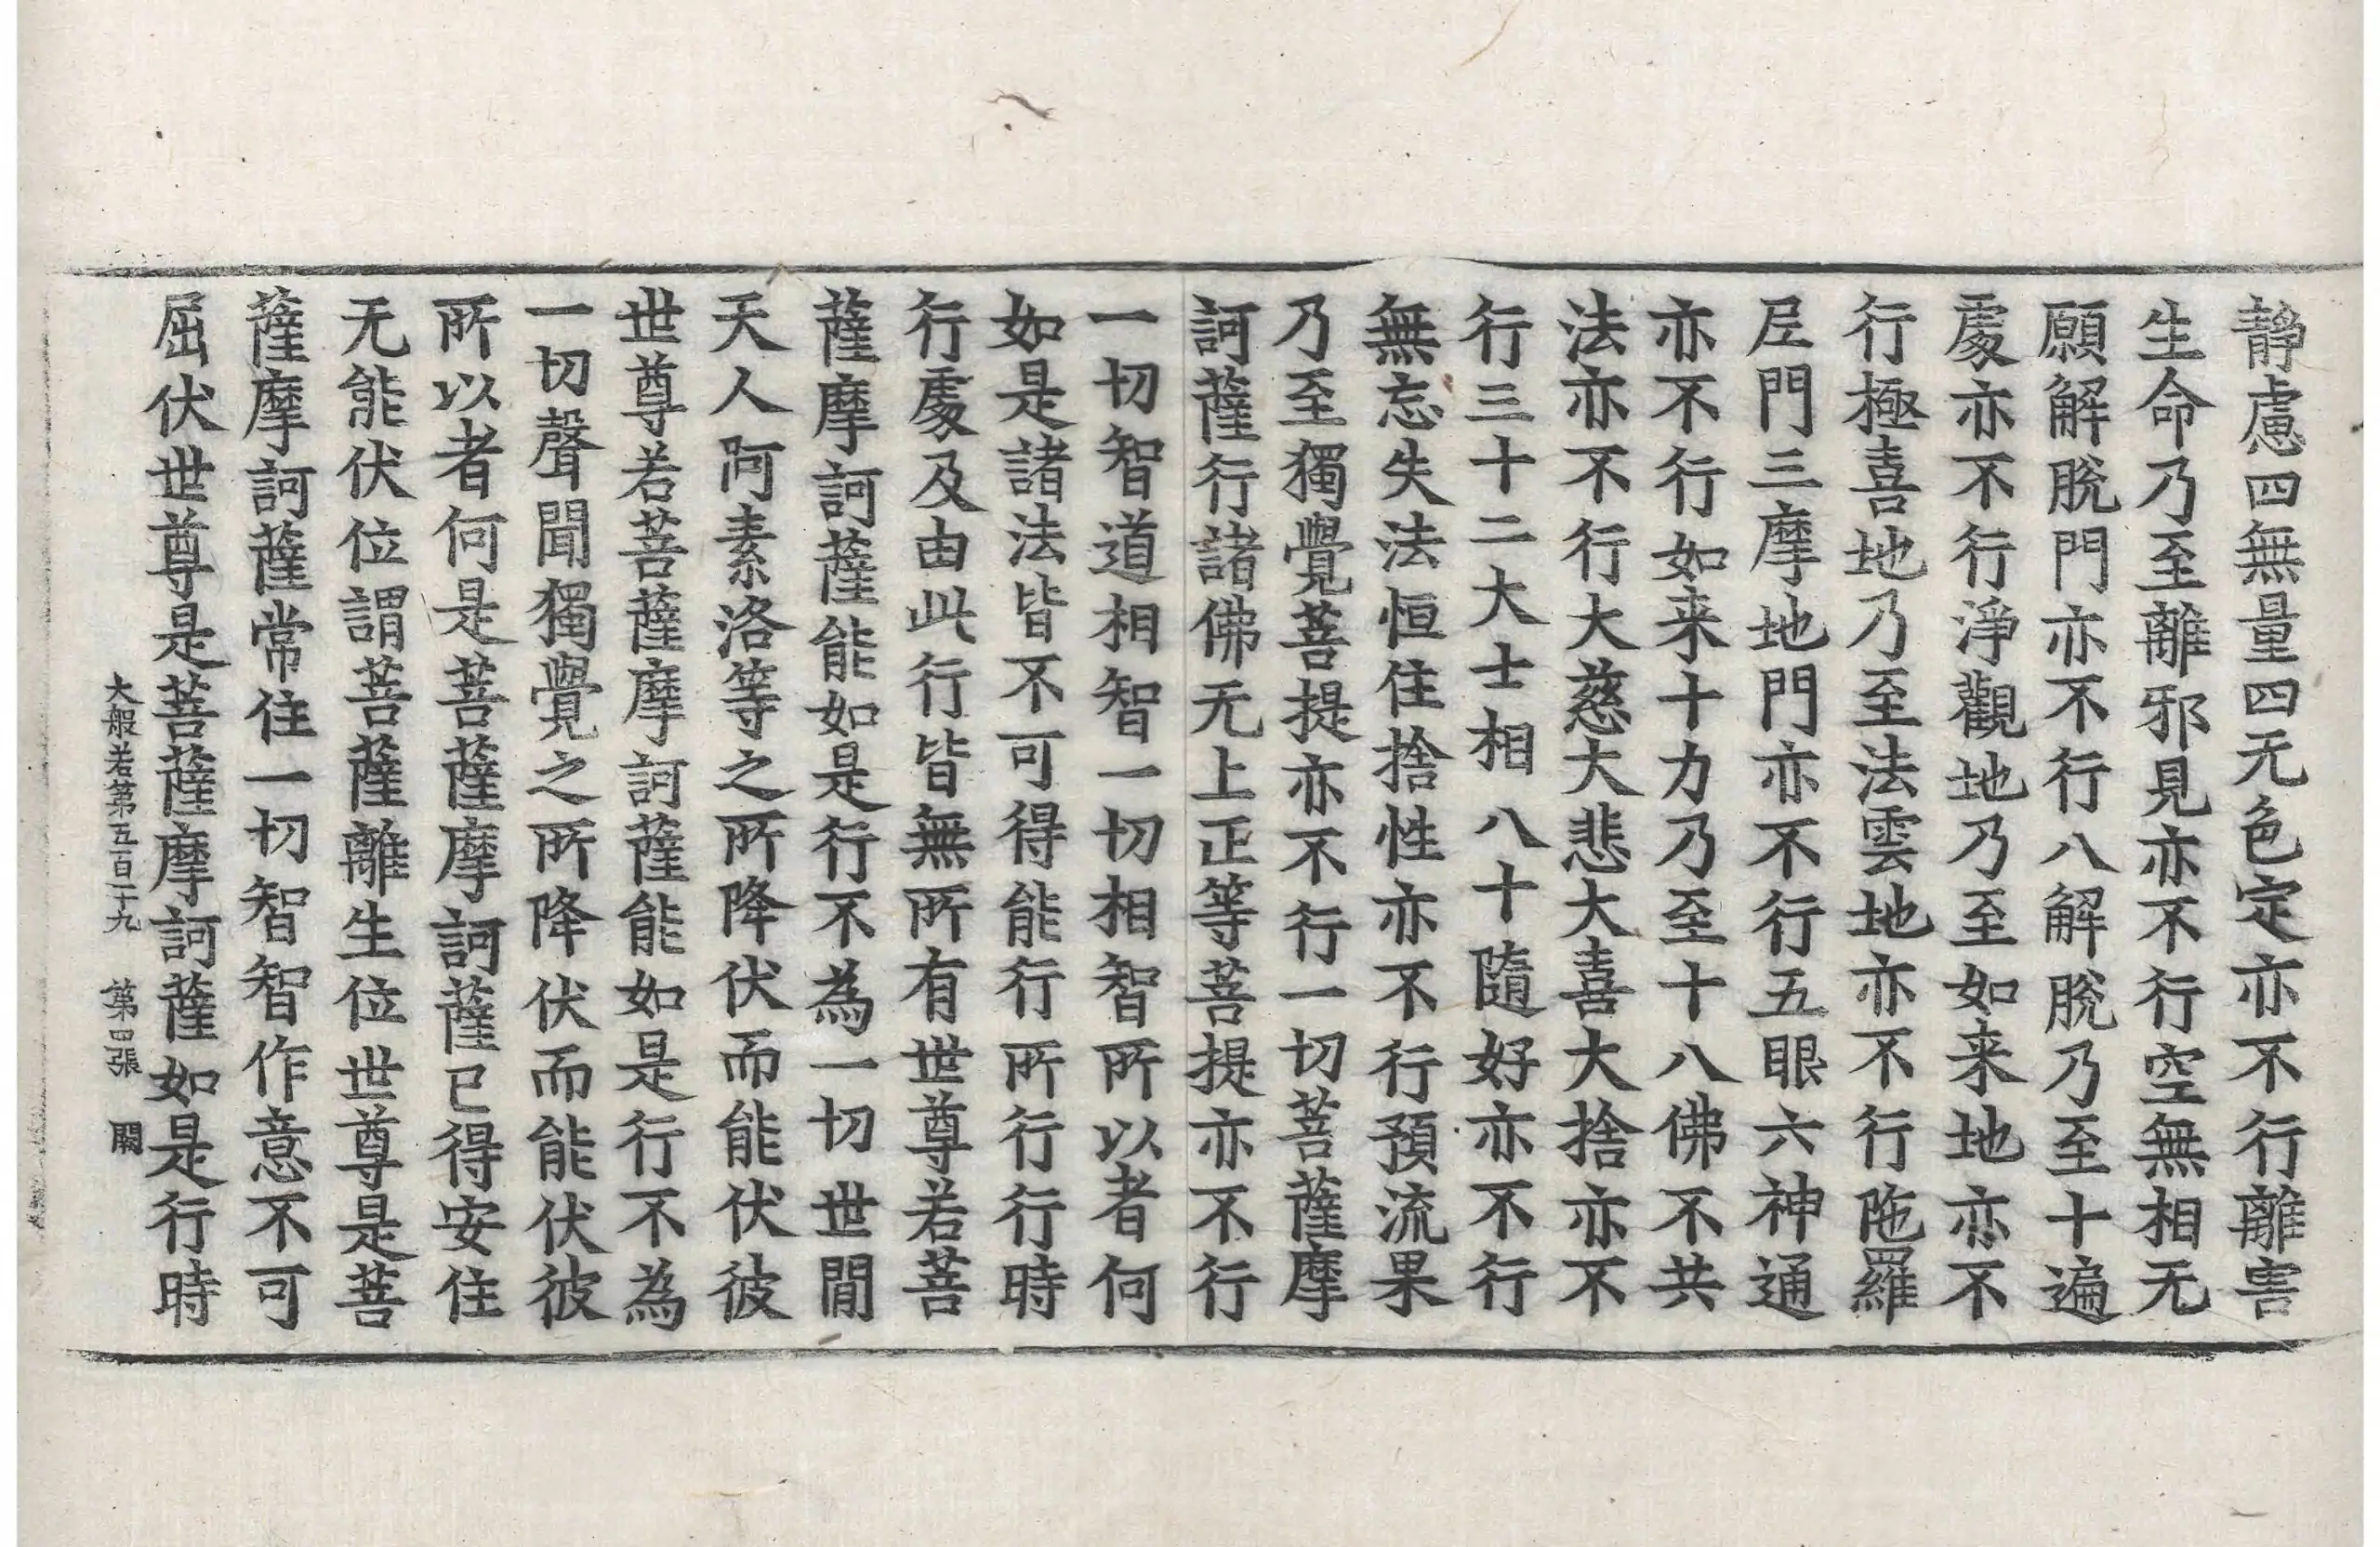 静慮四無量四无色定亦不行離害
生命乃至離邪見亦不行空無相无
願解脫門亦不行八解脫乃至十遍
處亦不行淨觀地乃至如来地亦不
行極喜地乃至法雲地亦不行陁羅
尼門三摩地門亦不行五眼六神通
亦不行如来十力乃至十八佛不共
法亦不行大慈大悲大喜大捨亦不
行三十二大士相八十隨好亦不行
無忘失法恒住捨性亦不行預流果
乃至獨覺菩提亦不行一切菩薩摩
訶薩行諸佛无上正等菩提亦不行
一切智道相智一切相智所以者何
如是諸法皆不可得能行所行行時
行處及由此行皆無所有世尊若菩
薩摩訶薩能如是行不為一切世閒
天人阿素洛等之所降伏而能伏彼
世尊若菩薩摩訶薩能如是行不為
一切聲聞獨覺之所降伏而能伏彼
所以者何是菩薩摩訶薩已得安住
无能伏位謂菩薩離生位世尊是菩
薩摩訶薩常住一切智智作意不可
屈伏世尊是菩薩摩訶薩如是行時
大般若第五百二十九 第四張 闕